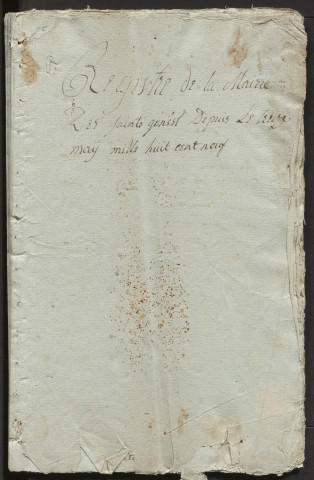 Registre de la Mairie
Des sainte genest Depuis Le
may mille huit cent neuf